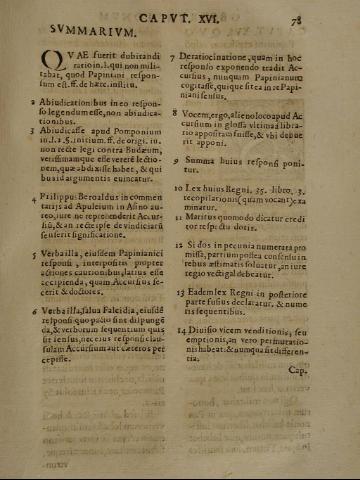 CAPVT. XVI. 78
SVMMARIVM.
QVAE fuerit dubitandi
ratio in. l. qui non mili-
tabat, quod Papiniani respon-
sum est. ff. de hære. institu.
2 Abiudicationibus in eo respon-
so legendum esse, non abiudica-
tionibus.
3 Abiudicasse apud Pomponium
in. l. 2. §. initium. ff. de orig. iu.
non recte legi contra Budæum,
verissimamque esse veterē lectio-
nem, quæ abdixisse habet, & qui
bus id argumentis euincatur.
4 Philippus Beroaldus in commen
tarijs ad Apuleium in Asino au-
reo, iure ne reprehenderit Accur-
siū, & an recte ipse de vindiciarū
senserit significatione.
5 Verba illa, eiusdem Papinianici
responsi, interpositis propter
actiones cautionibus, latius esse
accipienda, quam Accursius fe-
cerit & doctores.
6 Verba illa, salua Falcidia, eiusdē
responsi quo pacto sint dispungē
da, & verborum sequentium quis
sit sensus, nec eius responsi clau-
sulam Accursium aut cæteros per
cepisse.
7 De ratiocinatione, quam in hoc
responso exponendo tradit Ac-
cursius, nunquam Papinianum
cogitasse, quique sit ea in re Papi-
niani sensus.
8 Vocem, ergo, alieno loco apud Ac
cursium in glossa vltima à libra-
rio appositam fuisse, & vbi debue
rit apponi.
9 Summa huius responsi poni-
tur.
10 Lex huius Regni. 35. libro. 3.
recopilationis (quam vocant) exa
minatur.
11 Maritus quomodo dicatur credi
tor respectu dotis.
12 Si dos in pecunia numerata pro
missa, partium postea consensu in
rebus æstimatis soluatur, an iure
regio vectigal debeatur.
13 Eadem lex Regni in posteriore
parte fusius declaratur. & nume
ris sequentibus.
14 Diuisio vicem venditionis, seu
emptionis, an vero permutatio-
nis habeat: & an umqua sit differen-
tia.
Cap.